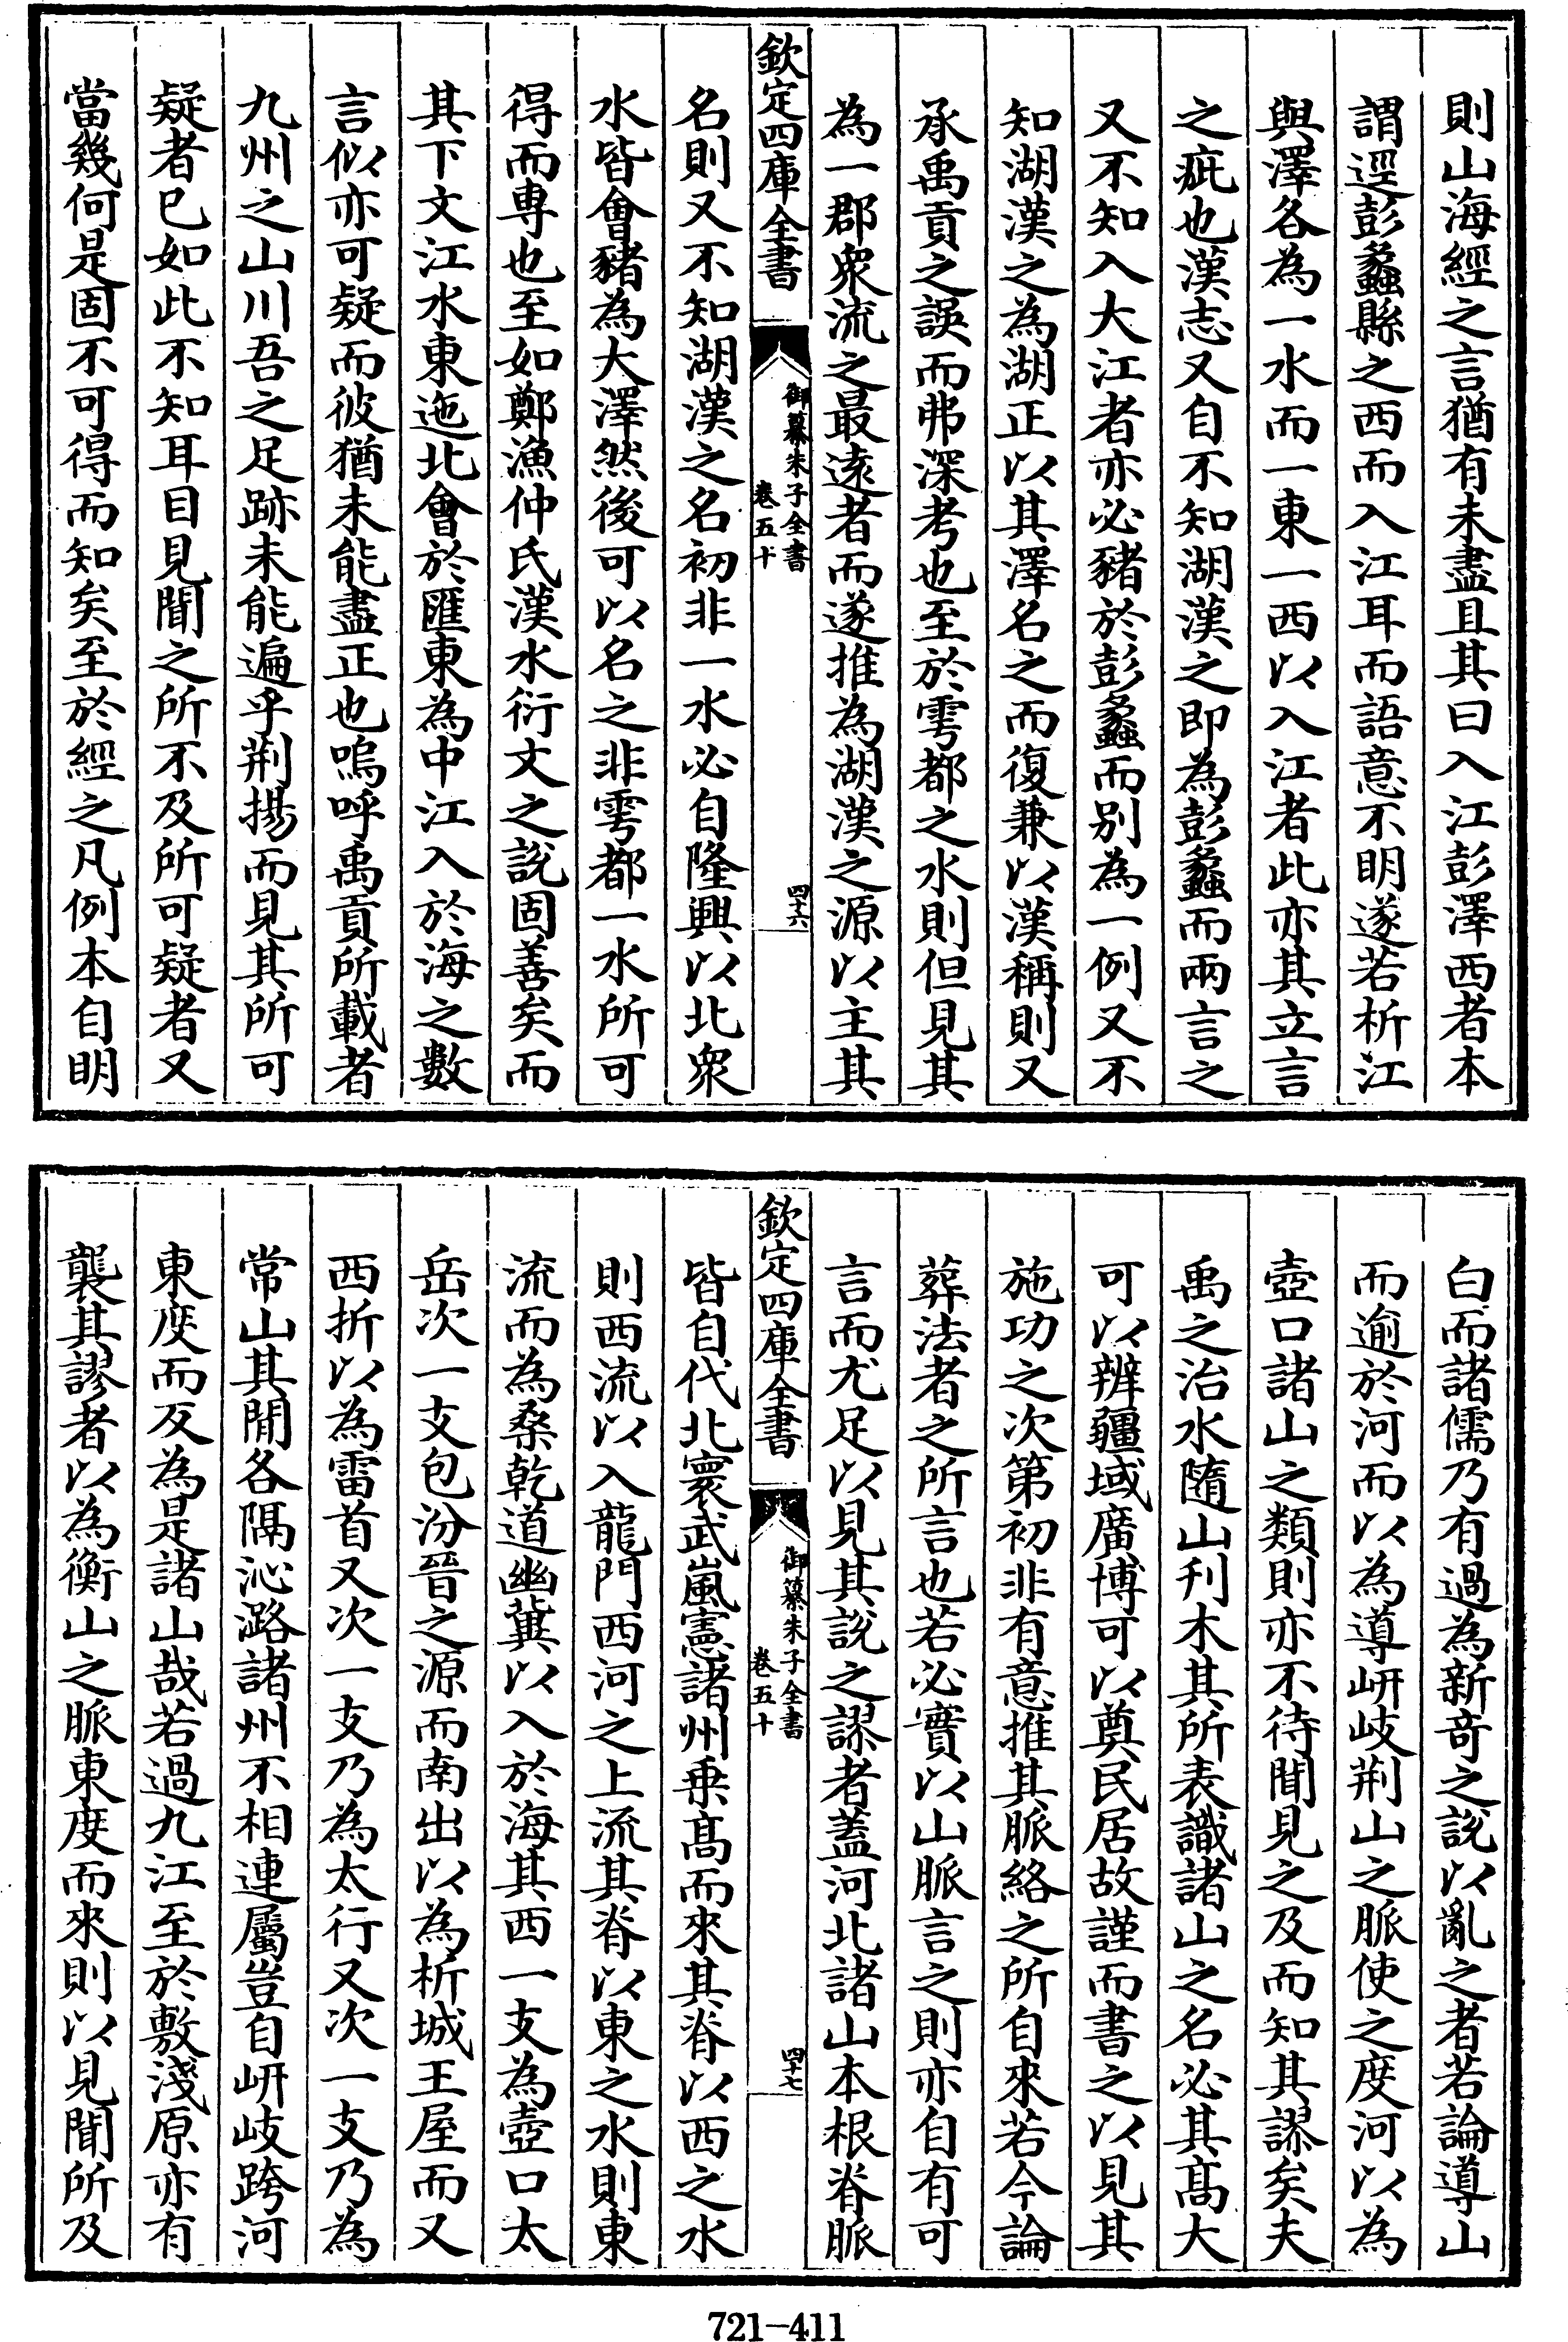 則山海經之言猶有未盡且其曰入江彭澤西者本
謂逕彭蠡縣之西而入江耳而語意不明遂若析江
與澤各為一水而一東一西以入江者此亦其立言
之疵也漢志又自不知湖漢之即為彭蠡而兩言之
又不知入大江者亦必豬於彭蠡而別為一例又不
知湖漢之為湖正以其澤名之而復兼以漢稱則又
承禹貢之誤而弗深考也至於雩都之水則但見其
為一郡衆流之最遠者而遂推為湖漢之源以主其
欽定四庫全書
御纂朱子全書
卷五十
四十六
名則又不知湖漢之名初非一水必自隆興以北衆
水皆會豬為大澤然後可以名之非雩都一水所可
得而專也至如鄭漁仲氏漢水衍文之說固善矣而
其下文江水東迤北會於匯東為中江入於海之數
言似亦可疑而彼猶未能盡正也嗚呼禹貢所載者
九州之山川吾之足跡未能遍乎荆揚而見其所可
疑者已如此不知耳目見聞之所不及所可疑者又
當幾何是固不可得而知矣至於經之凡例本自明
白而諸儒乃有過為新奇之說以亂之者若論導山
而逾於河而以為導岍岐荆山之脈使之度河以為
壺口諸山之類則亦不待聞見之及而知其謬矣夫
禹之治水隨山刋木其所表識諸山之名必其髙大
可以辨疆域廣博可以奠民居故謹而書之以見其
施功之次第初非有意推其脈絡之所自來若今論
葬法者之所言也若必實以山脈言之則亦自有可
言而尤足以見其說之謬者蓋河北諸山本根脊脈
欽定四庫全書
御纂朱子全書
卷五十
四十七
皆自代北寰武嵐憲諸州乗髙而來其脊以西之水
則西流以入龍門西河之上流其脊以東之水則東
流而為桑乾道幽冀以入於海其西一支為壺口太
岳次一支包汾晉之源而南出以為析城王屋而又
西折以為雷首又次一支乃為太行又次一支乃為
常山其間各隔沁潞諸州不相連屬豈自岍岐跨河
東度而反為是諸山哉若過九江至於敷淺原亦有
襲其謬者以為衡山之脈東度而來則以見聞所及
721-411